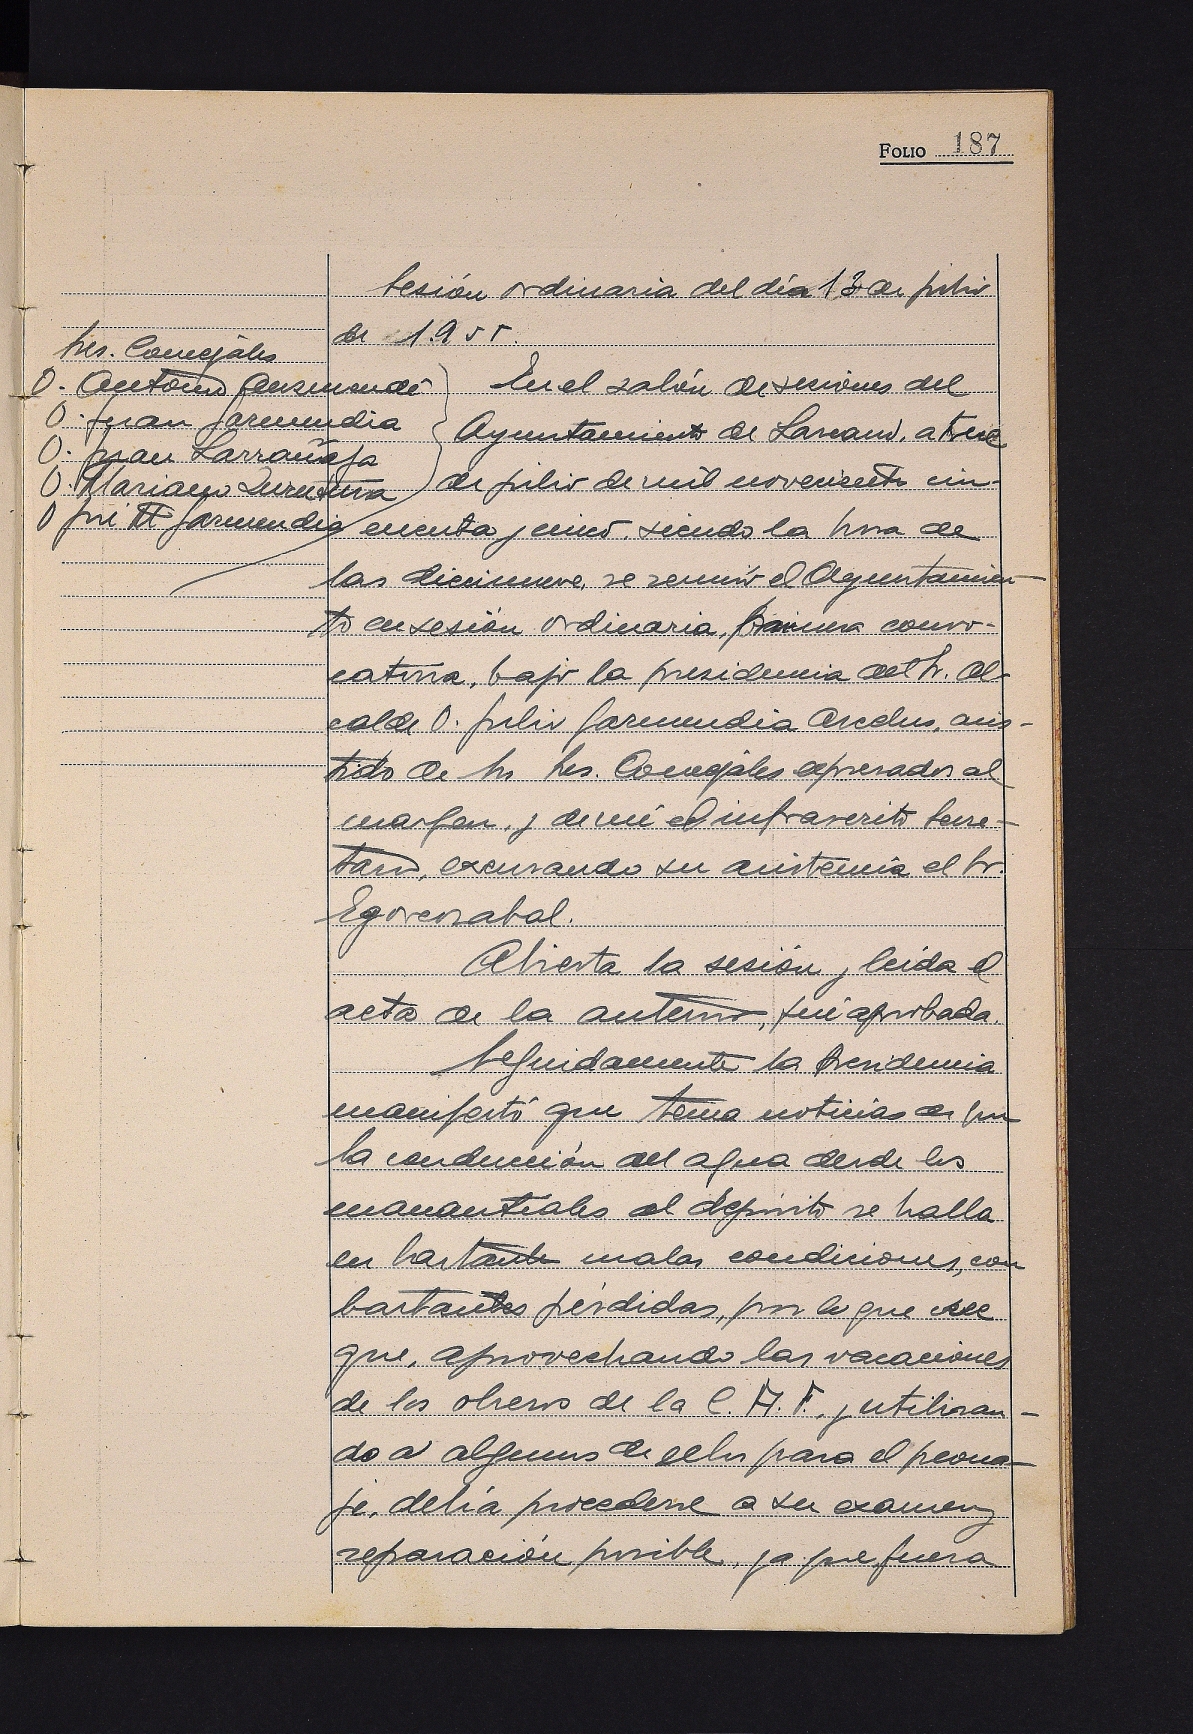 FOLIO 187
Sesión ordinaria del día 13 de julio
de 1.955.
Sres. Concejales
D. Antonio Auzmendi
D. Juan Garmendia
D. Juan Larrañaga
D. Mariano
D. José Mª Garmendia
En el salón de sesiones del
Ayuntamiento de Lazcano, a trece
de julio de mil novecientos cin-
cuenta y cinco, siendo la hora de
las diecinueve, se reunió el Ayuntamien-
to en sesión ordinaria, primera convo-
catoria, bajo la presidencia del Sr. Al-
calde D. Julio Garmendia, asis-
tido de los Sres. Concejales expresados al
margen, y de mí el infrascrito Secre-
tario, excusando su asistencia el Sr.
Egorcozabal.
Abierta la sesión y leída el
acta de la anterior, fué aprobada.
Seguidamente la Presidencia
manifestó que tenía noticias de que
la conducción del agua desde los
manantiales al depósito se halla
en bastante malas condiciones, con
bastantes pérdidas, por lo que cree
que, aprovechando las vacaciones
de los obreros de la C. A. F., y utilizan-
do a algunos de ellos para el peona-
je, debía procederse a su examen y
reparación posible, ya que fuera